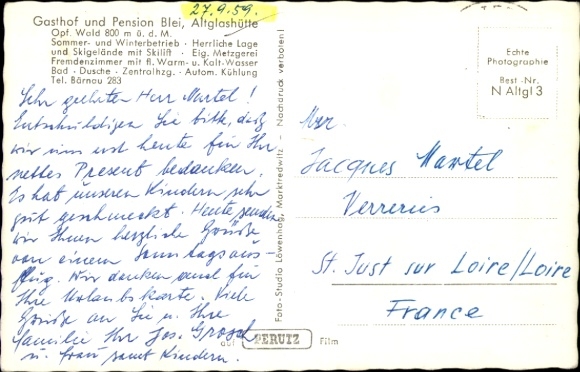 27.9.59.
Gasthof und Pension Blei, Altglashütte
Opf. Wald 800 m ü. d. M.
Sommer- und Winterbetrieb · Herrliche Lage
und Skigelände mit Skilift · Eig. Metzgerei
Fremdenzimmer mit fl. Warm- u. Kalt-Wasser
Bad · Dusche · Zentralhzg. · Autom. Kühlung
Tel. Bärnau 283
Sehr geehrter Herr Martel!
Entschuldigen Sie bitte, daß
wir uns erst heute für Ihr
nettes Present bedanken.
Es hat unseren Kindern sehr
gut geschmeckt. Heute senden
wir Ihnen herzliche Grüße
von einem Sonntagsaus-
flug. Wir danken auch für
Ihre Urlaubskarte. Viele
Grüße an Sie u. Ihre
Familie Ihr Jos. Grosch
u. Frau samt Kindern.
Foto-Studio Löwenhag, Marktredwitz - Nachdruck verboten!
auf PERUTZ Film
Echte
Photographie
Best.-Nr.
N Altgl 3
Jacques Martel
Verreries
St. Just sur Loire/Loire
France